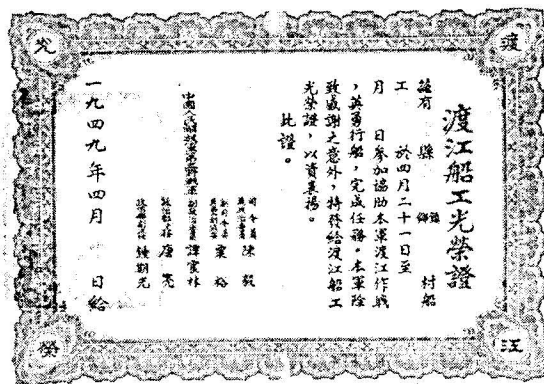 渡
江
光
榮
渡江船工光榮證
茲有 縣 區鄉 村船
工 於四月二十一日至
月 日參加協助本軍渡江作戰
，英勇行船，完成任務。本軍除
致感謝之意外，特發給渡江船工
光榮證，以資表揚。
此證。
中國人民解放軍第三野戰軍
司令員 陳毅
粟裕
副政治委員 譚震林
政治部主任 唐亮
政治部副主任 鍾期光
一九四九年四月 日給